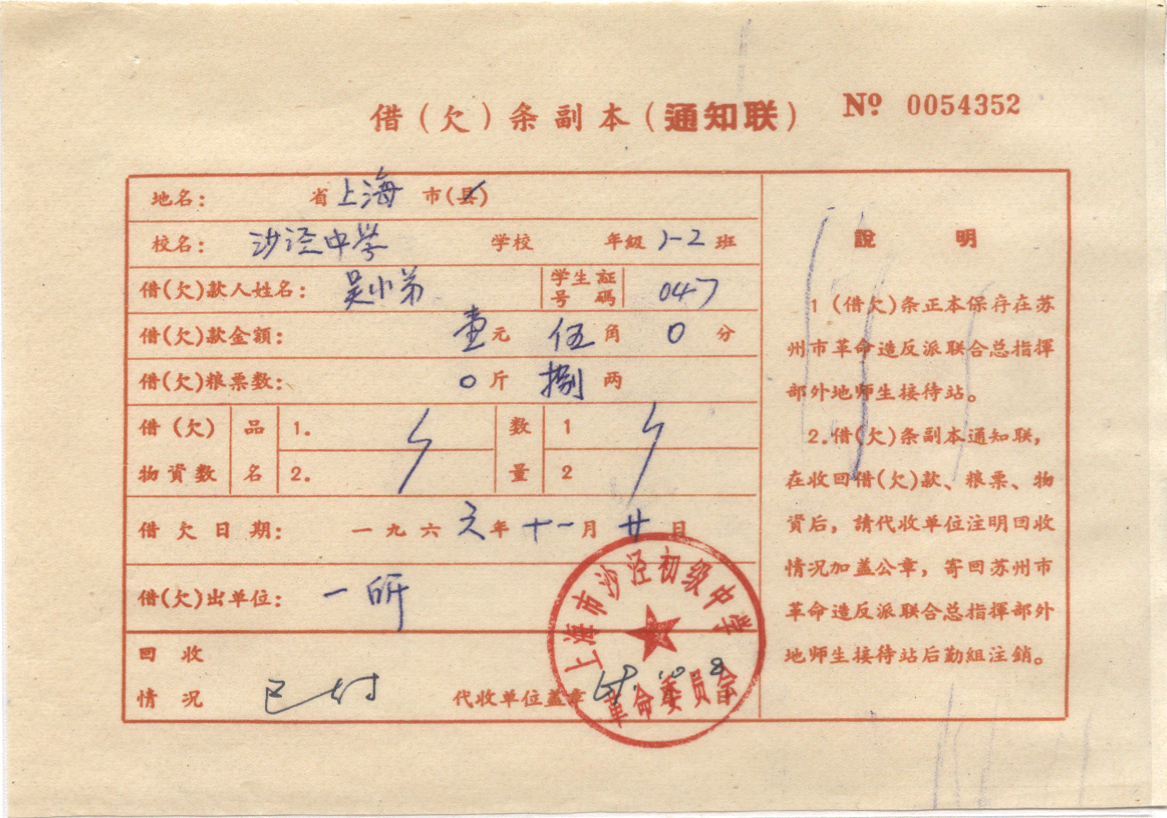 借(欠)条副本(通知联) Nº 0054352
地名: 省上海市(县)
校名: 沙泾中学 学校 年级 1-2 班
借(欠)款人姓名: 吴小弟 学生証号碼 047
借(欠)款金額: 壹元 伍角 0分
借(欠)粮票数: 0斤 捌两
借(欠)物資数 品名 1. 数量 1
2. 2
借欠日期: 一九六六年十一月廿日
借(欠)出单位: 一所
回收情况 已付 代收单位盖章 日
上海市沙泾初级中学
革命委员会
說明
1(借欠)条正本保存在苏
州市革命造反派联合总指揮
部外地师生接待站。
2.借(欠)条副本通知联,
在收回借(欠)款、粮票、物
資后,請代收单位注明回收
情况加盖公章,寄回苏州市
革命造反派联合总指揮部外
地师生接待站后勤組注銷。